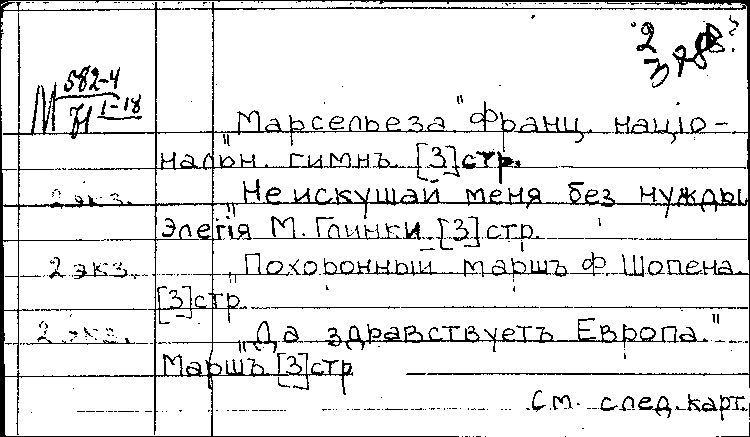 М 582-4
1-18
„Марсельеза." Франц. націо-
нальн. гимнъ. [3] стр.
2 экз. „Не искушай меня без нужды
Элегія М. Глинки [3] стр.
2 экз. „Похоронный маршъ Ф. Шопена.
[3] стр.
2 экз. „Да здравствуетъ Европа."
Маршъ [3] стр
См. след. карт.